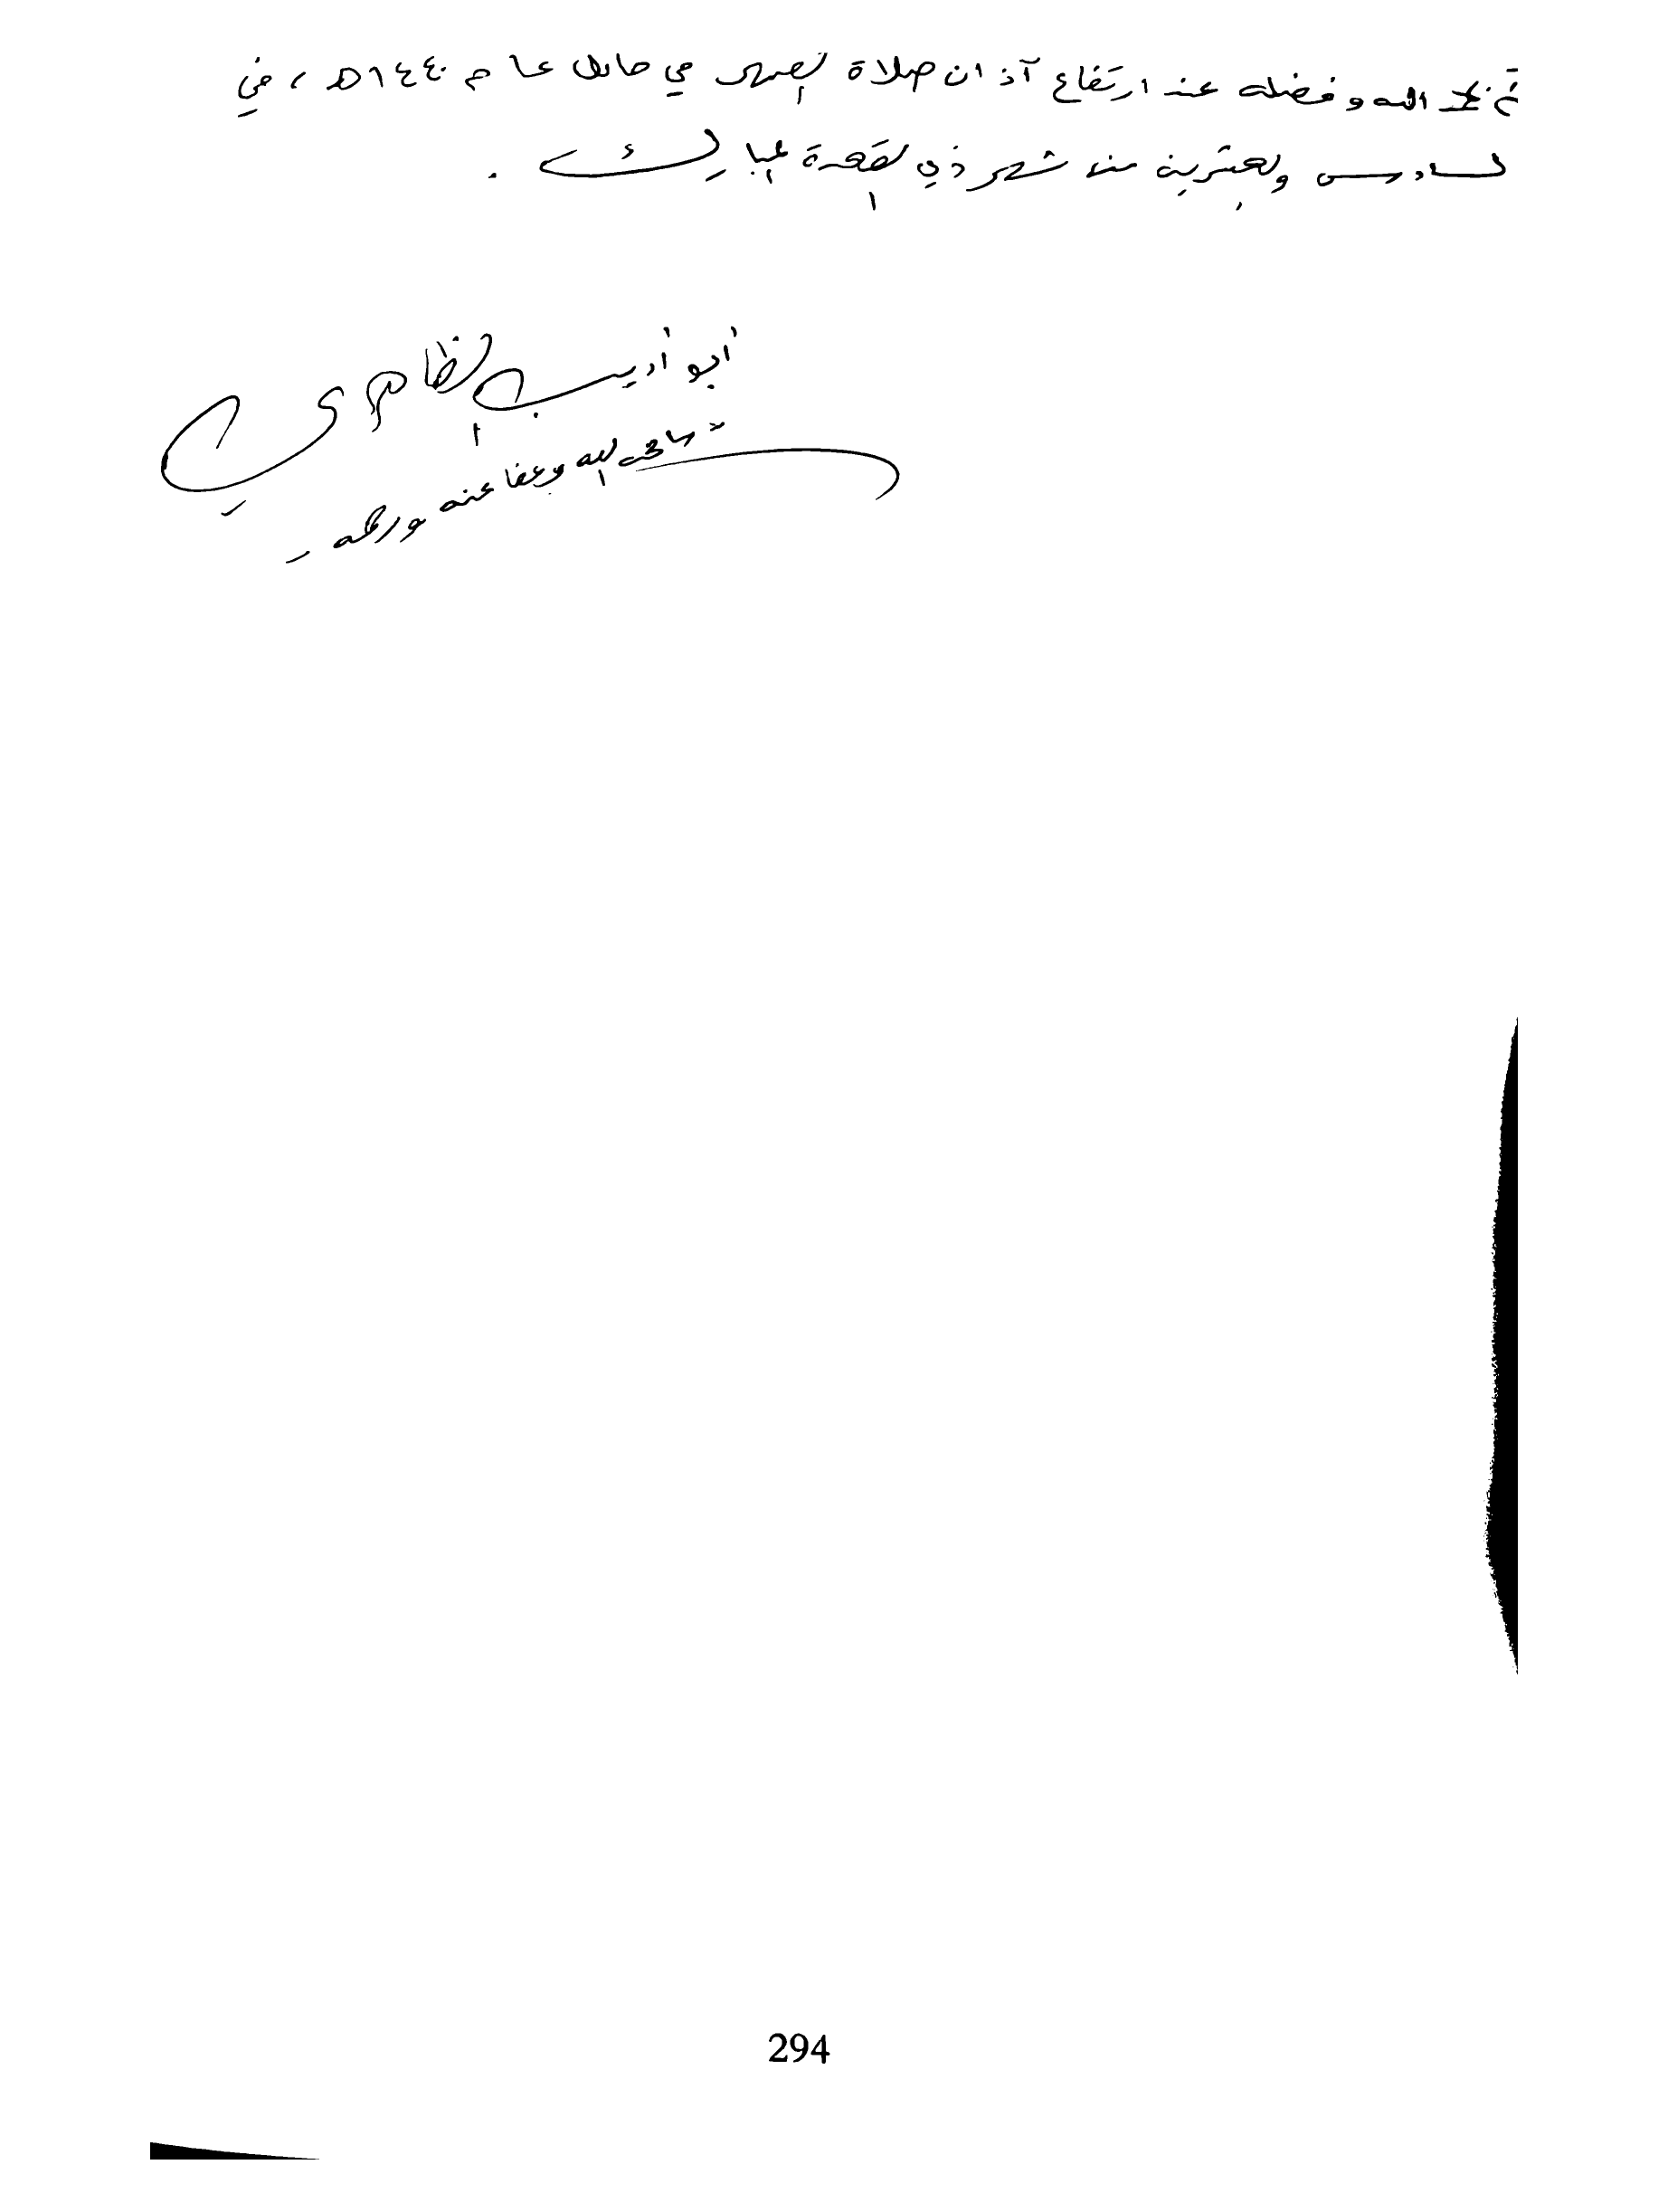 تم بحمد الله وفضله عند ارتفاع آذان صلاة العصر في حائل عام ١٤٤٠هـ، في
السادس والعشرين من شهر ذي القعدة المبارك.
أبو أديب الظاهري
سامحه الله وعفا عنه ورحمه
294